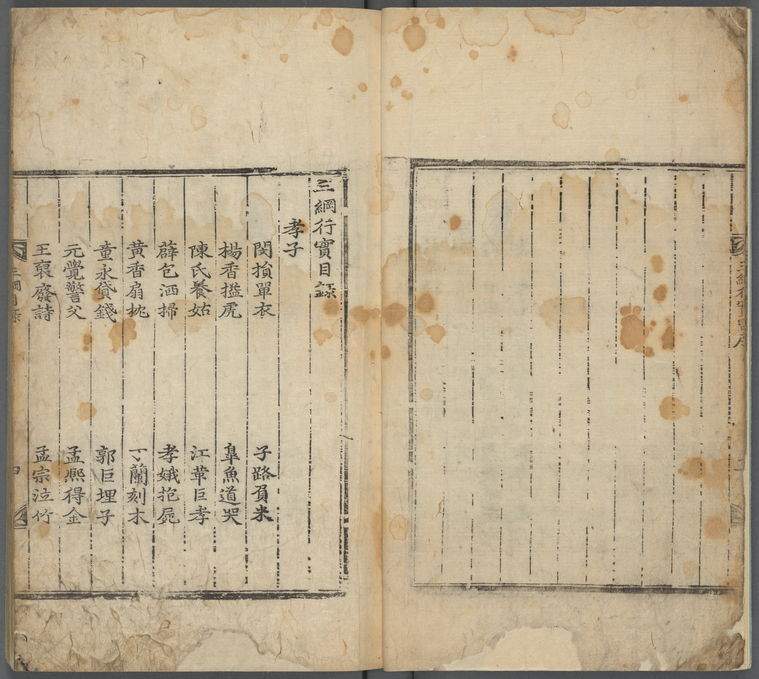 三綱行實目錄
孝子
閔損單衣 子路負米
楊香搤虎 臯魚道哭
陳氏養姑 江革巨孝
薛包洒掃 孝娥抱屍
黃香扇枕 丁蘭刻木
董永貸錢 郭巨埋子
元覺警父 孟熙得金
王裒廢詩 孟宗泣竹
三綱目錄 四